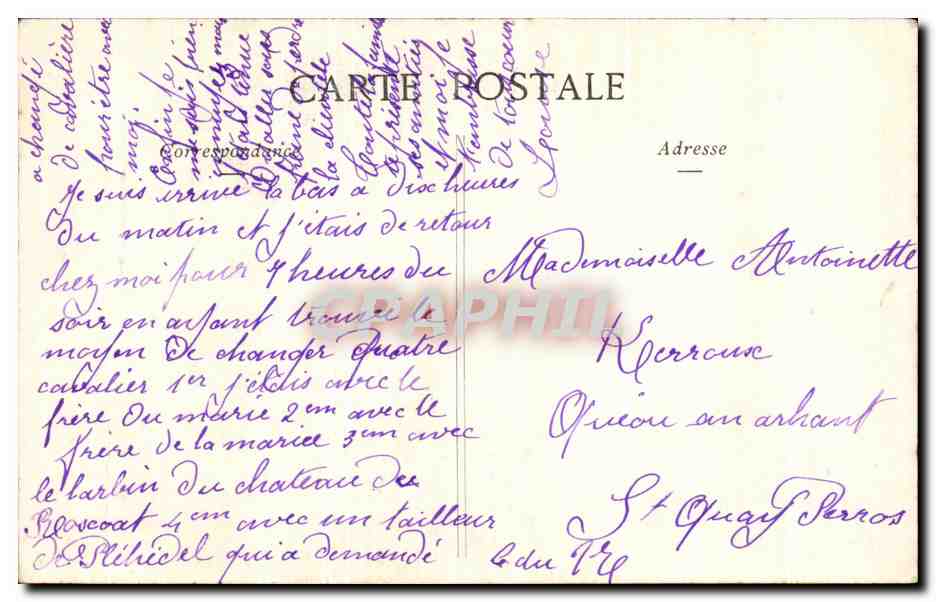 CARTE POSTALE
Correspondance
Adresse
Je suis arrivé la bas a dix heures
du matin et j'étais de retour
chez moi pour 7 heures du
soir en ayant trouvé le
moyen de changer quatre
cavalier 1er j'étais avec le
frère du marié 2em avec le
frère de la mariée 3em avec
le larbin du chateau du
Roscoat 4em avec un tailleur
de Pléhédel qui a demandé
a changé
de cavalière
pour être avec
moi
Enfin je
me suis bien
amusée mais
il a
salles sous
peine perdre
la
toute famille
se
ses amitiés
et moi je
t'embrasse
de tout coeur
Louise
Mademoiselle Antoinette
Kerroux
Quéou an arhant
St Quay Perros
C. du Nd
CPAPHIL